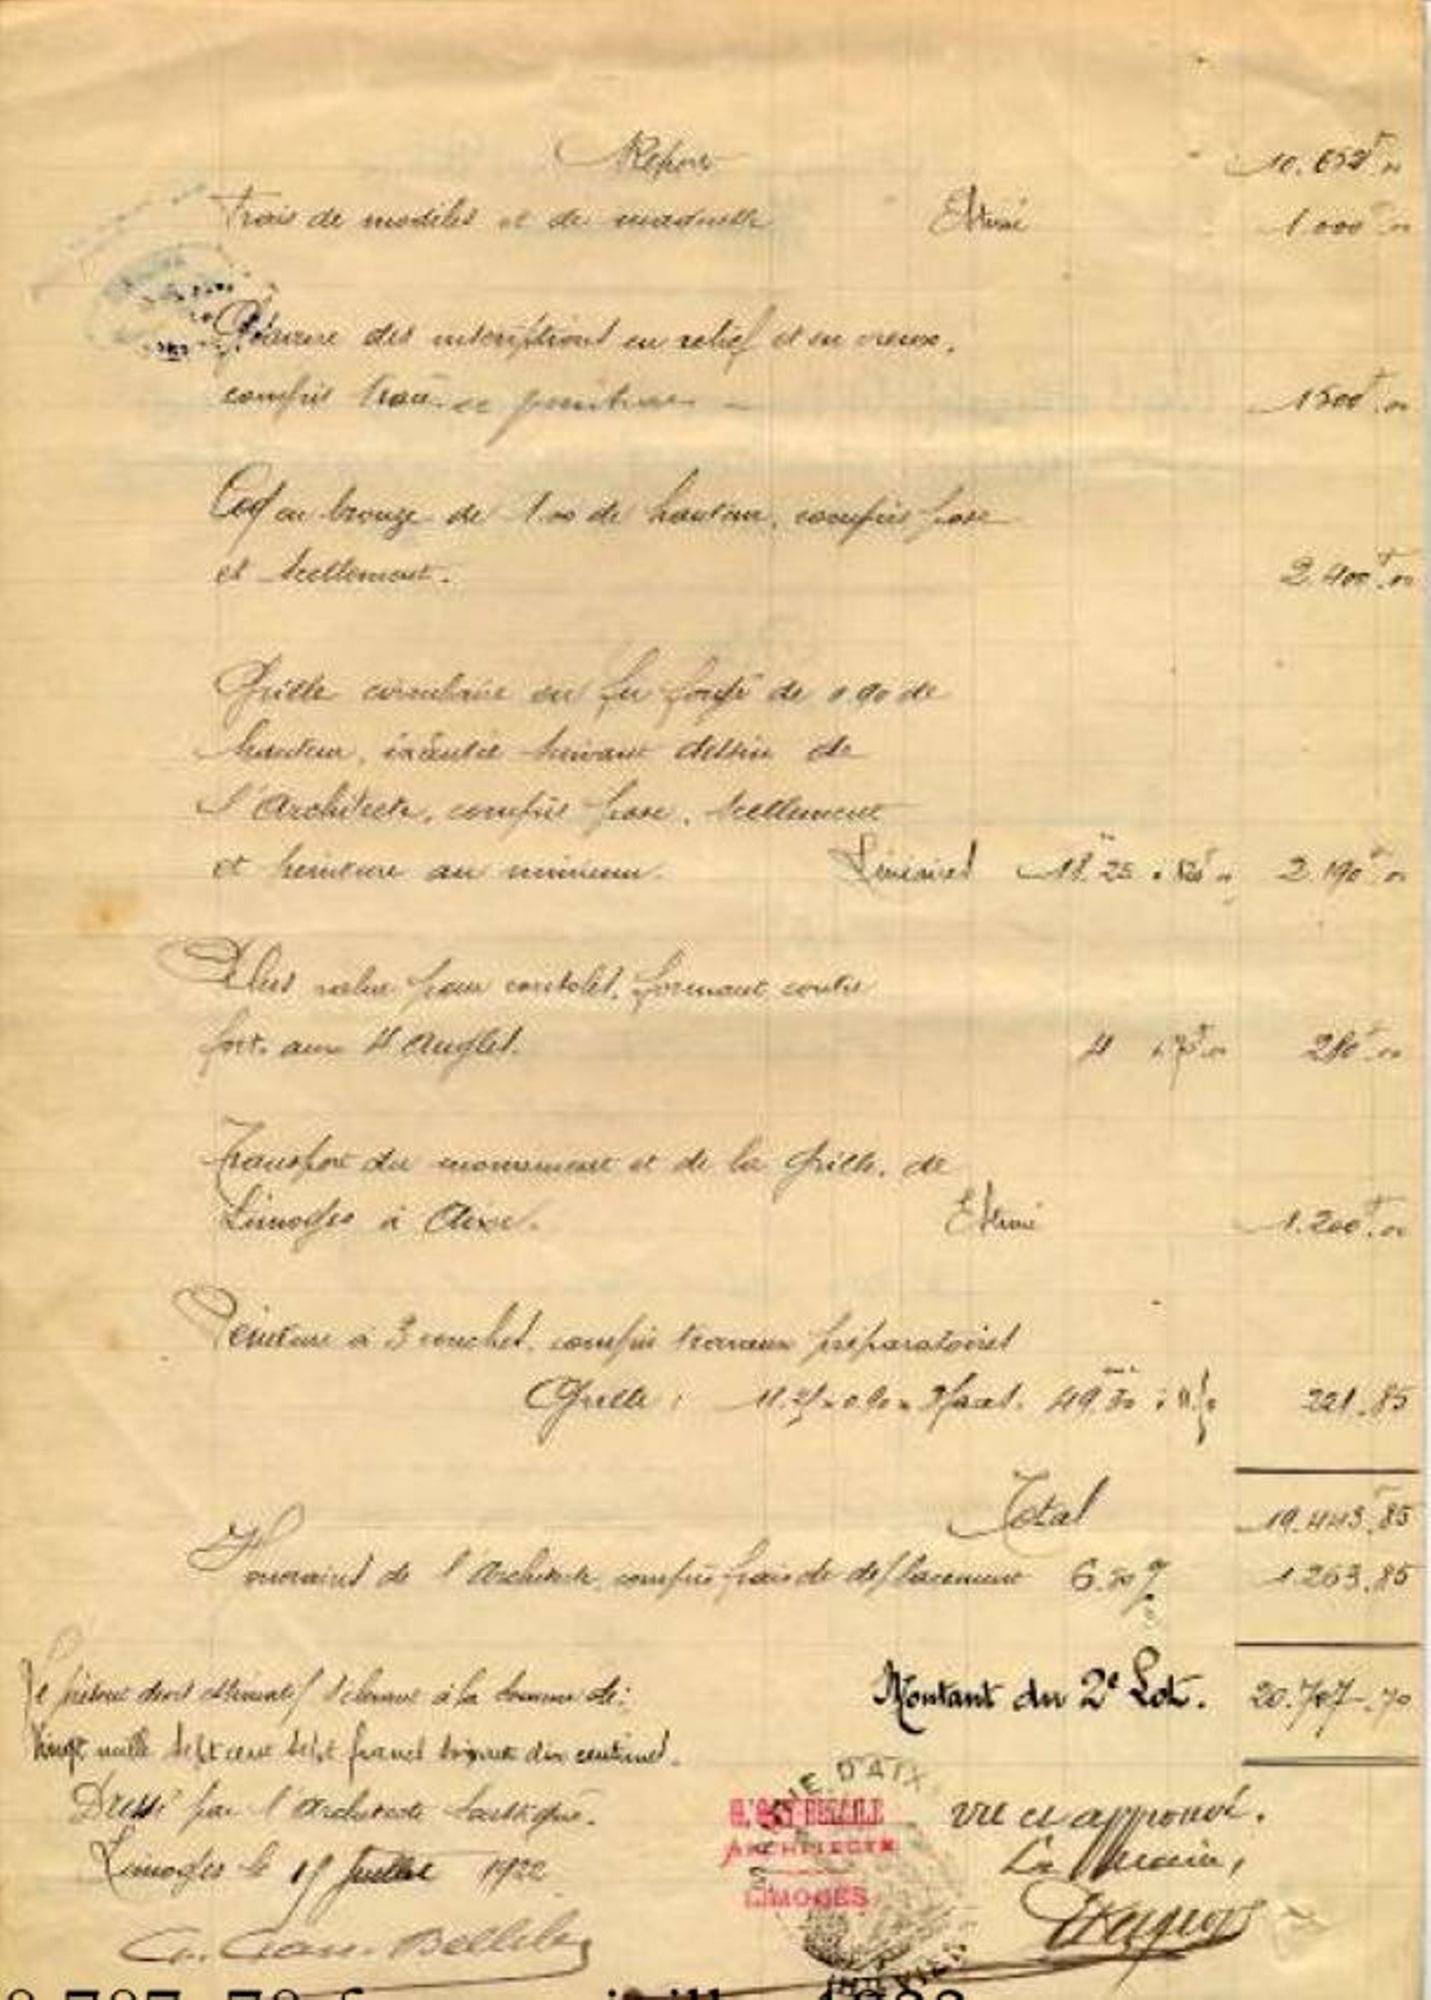 Report 10.652f.00
Frais de modèles et de maquette Estimé 1.000f.00
Gravure des inscriptions en relief et en creux,
compris tracé et peinture 1500f.00
Coq en bronze de 1.00 de hauteur, compris pose
et scellement. 2.400f.00
Grille circulaire en fer forgé de 0.90 de
hauteur, exécutée suivant dessin de
l'Architecte, compris pose, scellement
et peinture au minium. Linéaires 18.25 à 120f.00 2.190f.00
Plus value pour consoles, formant contre
fort aux 4 angles. 4 à 70f.00 280f.00
Transport du monument et de la grille, de
Limoges à Aixe. Estimé 1.200f.00
Peinture à 3 couches, compris travaux préparatoires
Grille : 0.90 x 3 faces. 49.30 221.85
Total 19.443f.85
Honoraires de l'Architecte compris frais de déplacement 6.50% 1.263.85
Le présent devis estimatif s'élevant à la somme de: Montant du 2e Lot. 20.707.70
Vingt mille sept cent sept francs soixante dix centimes.
Dressé par l'Architecte soussigné. vu et approuvé.
Limoges le Juillet 1922 Le Maire,
ARCHITECTE
LIMOGES
D'AIX